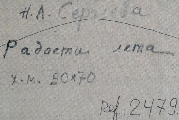 Н.А. Сергеева
Радости лета
х.м. 50х70
Ref. 2479